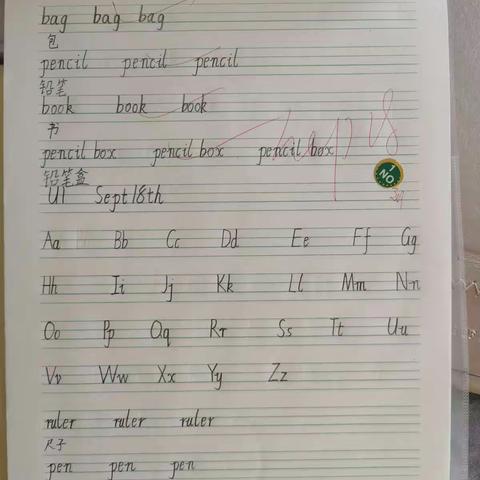 bag bag bag
包
pencil pencil pencil
铅笔
book book book
书
pencil box pencil box pencil box
铅笔盒
1
NO
U1 Sept 18th
Aa Bb Cc Dd Ee Ff Gg
Hh Ii Jj Kk Ll Mm Nn
Oo Pp Qq Rr Ss Tt Uu
Vv Ww Xx Yy Zz
ruler ruler ruler
尺子
pen pen pen